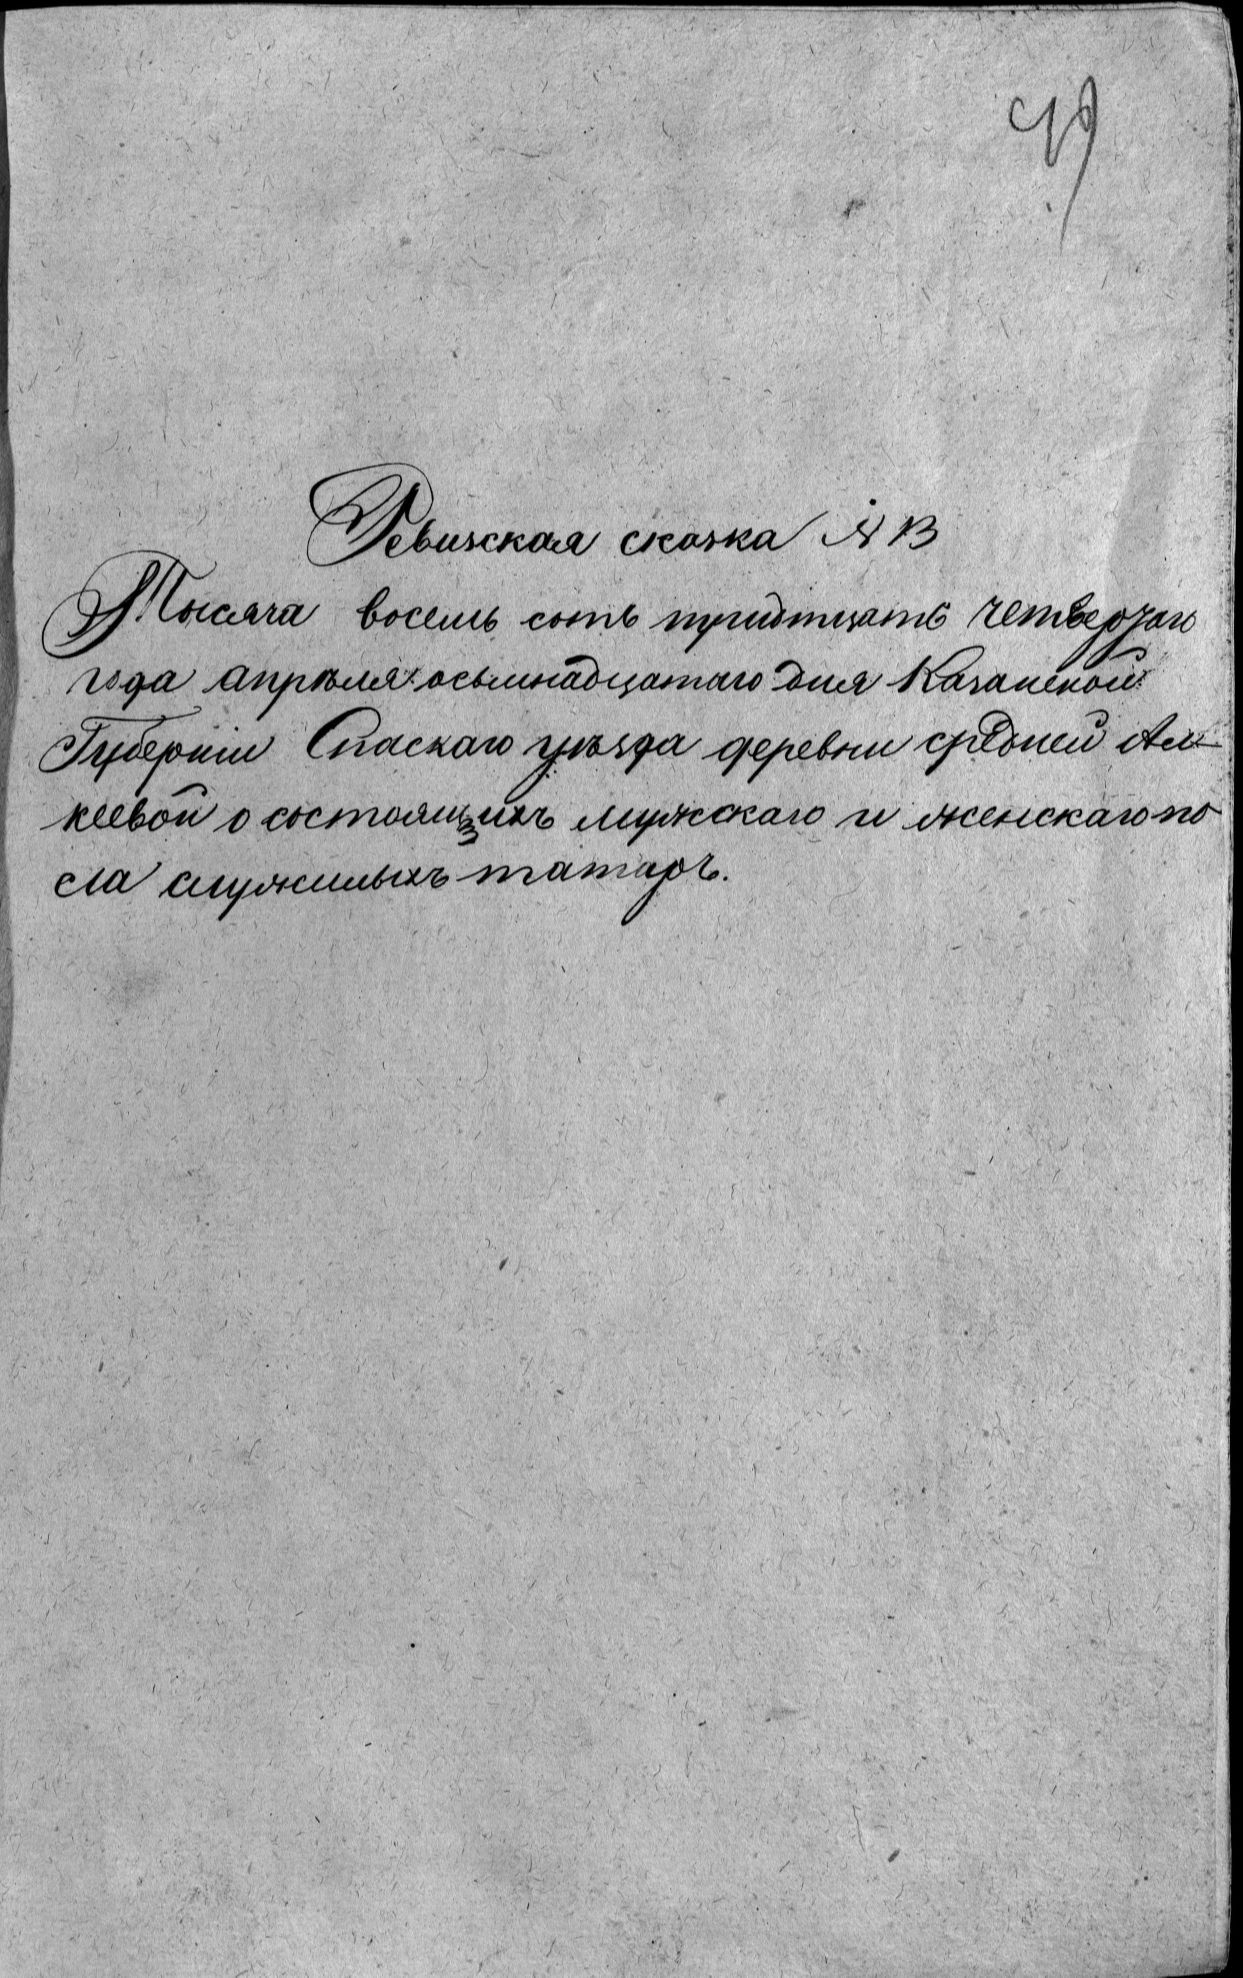 49
Ревизская сказка № 13
Тысяча восемь сотъ тридтцать четвертаго
года апрѣля осьмнадцатаго дня Казанской
Губерніи Спаскаго уѣзда деревни средней Ал-
кеевой о состоящихъ мужскаго и женскаго по
ла служилыхъ татаръ.